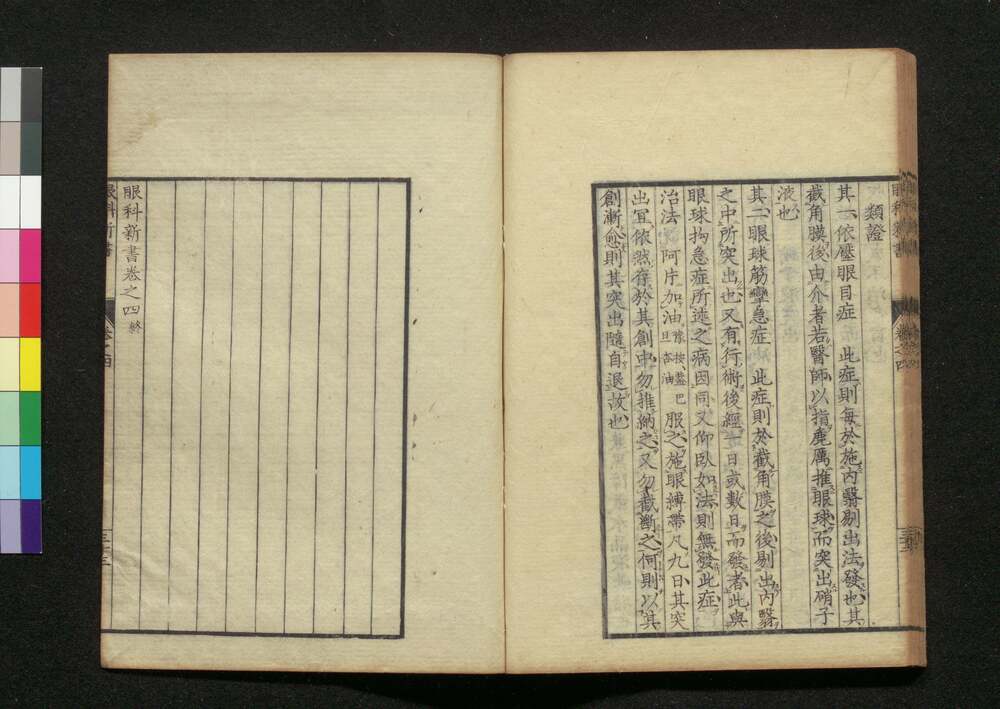 類證
其一依壓眼目症　此症則毎於施內翳剔出法發也其
截角膜後由介者若醫師以指麁厲推眼球而突出硝子
液也
其二眼球筋攣急症　此症則於截角膜之後剔出內翳
之中所突出也又有行術後經一日或數日而發者此與
眼球拘急症所述之病因同又仰臥如法則無發此症
治法　阿片加油服之施眼縛帶凡九日其突
出宜依然存於其創中勿推納之又勿截斷之何則以其
創漸愈則其突出隨自退故也
眼科新書
卷之四
眼科新書卷之四終
眼科新書
卷之四